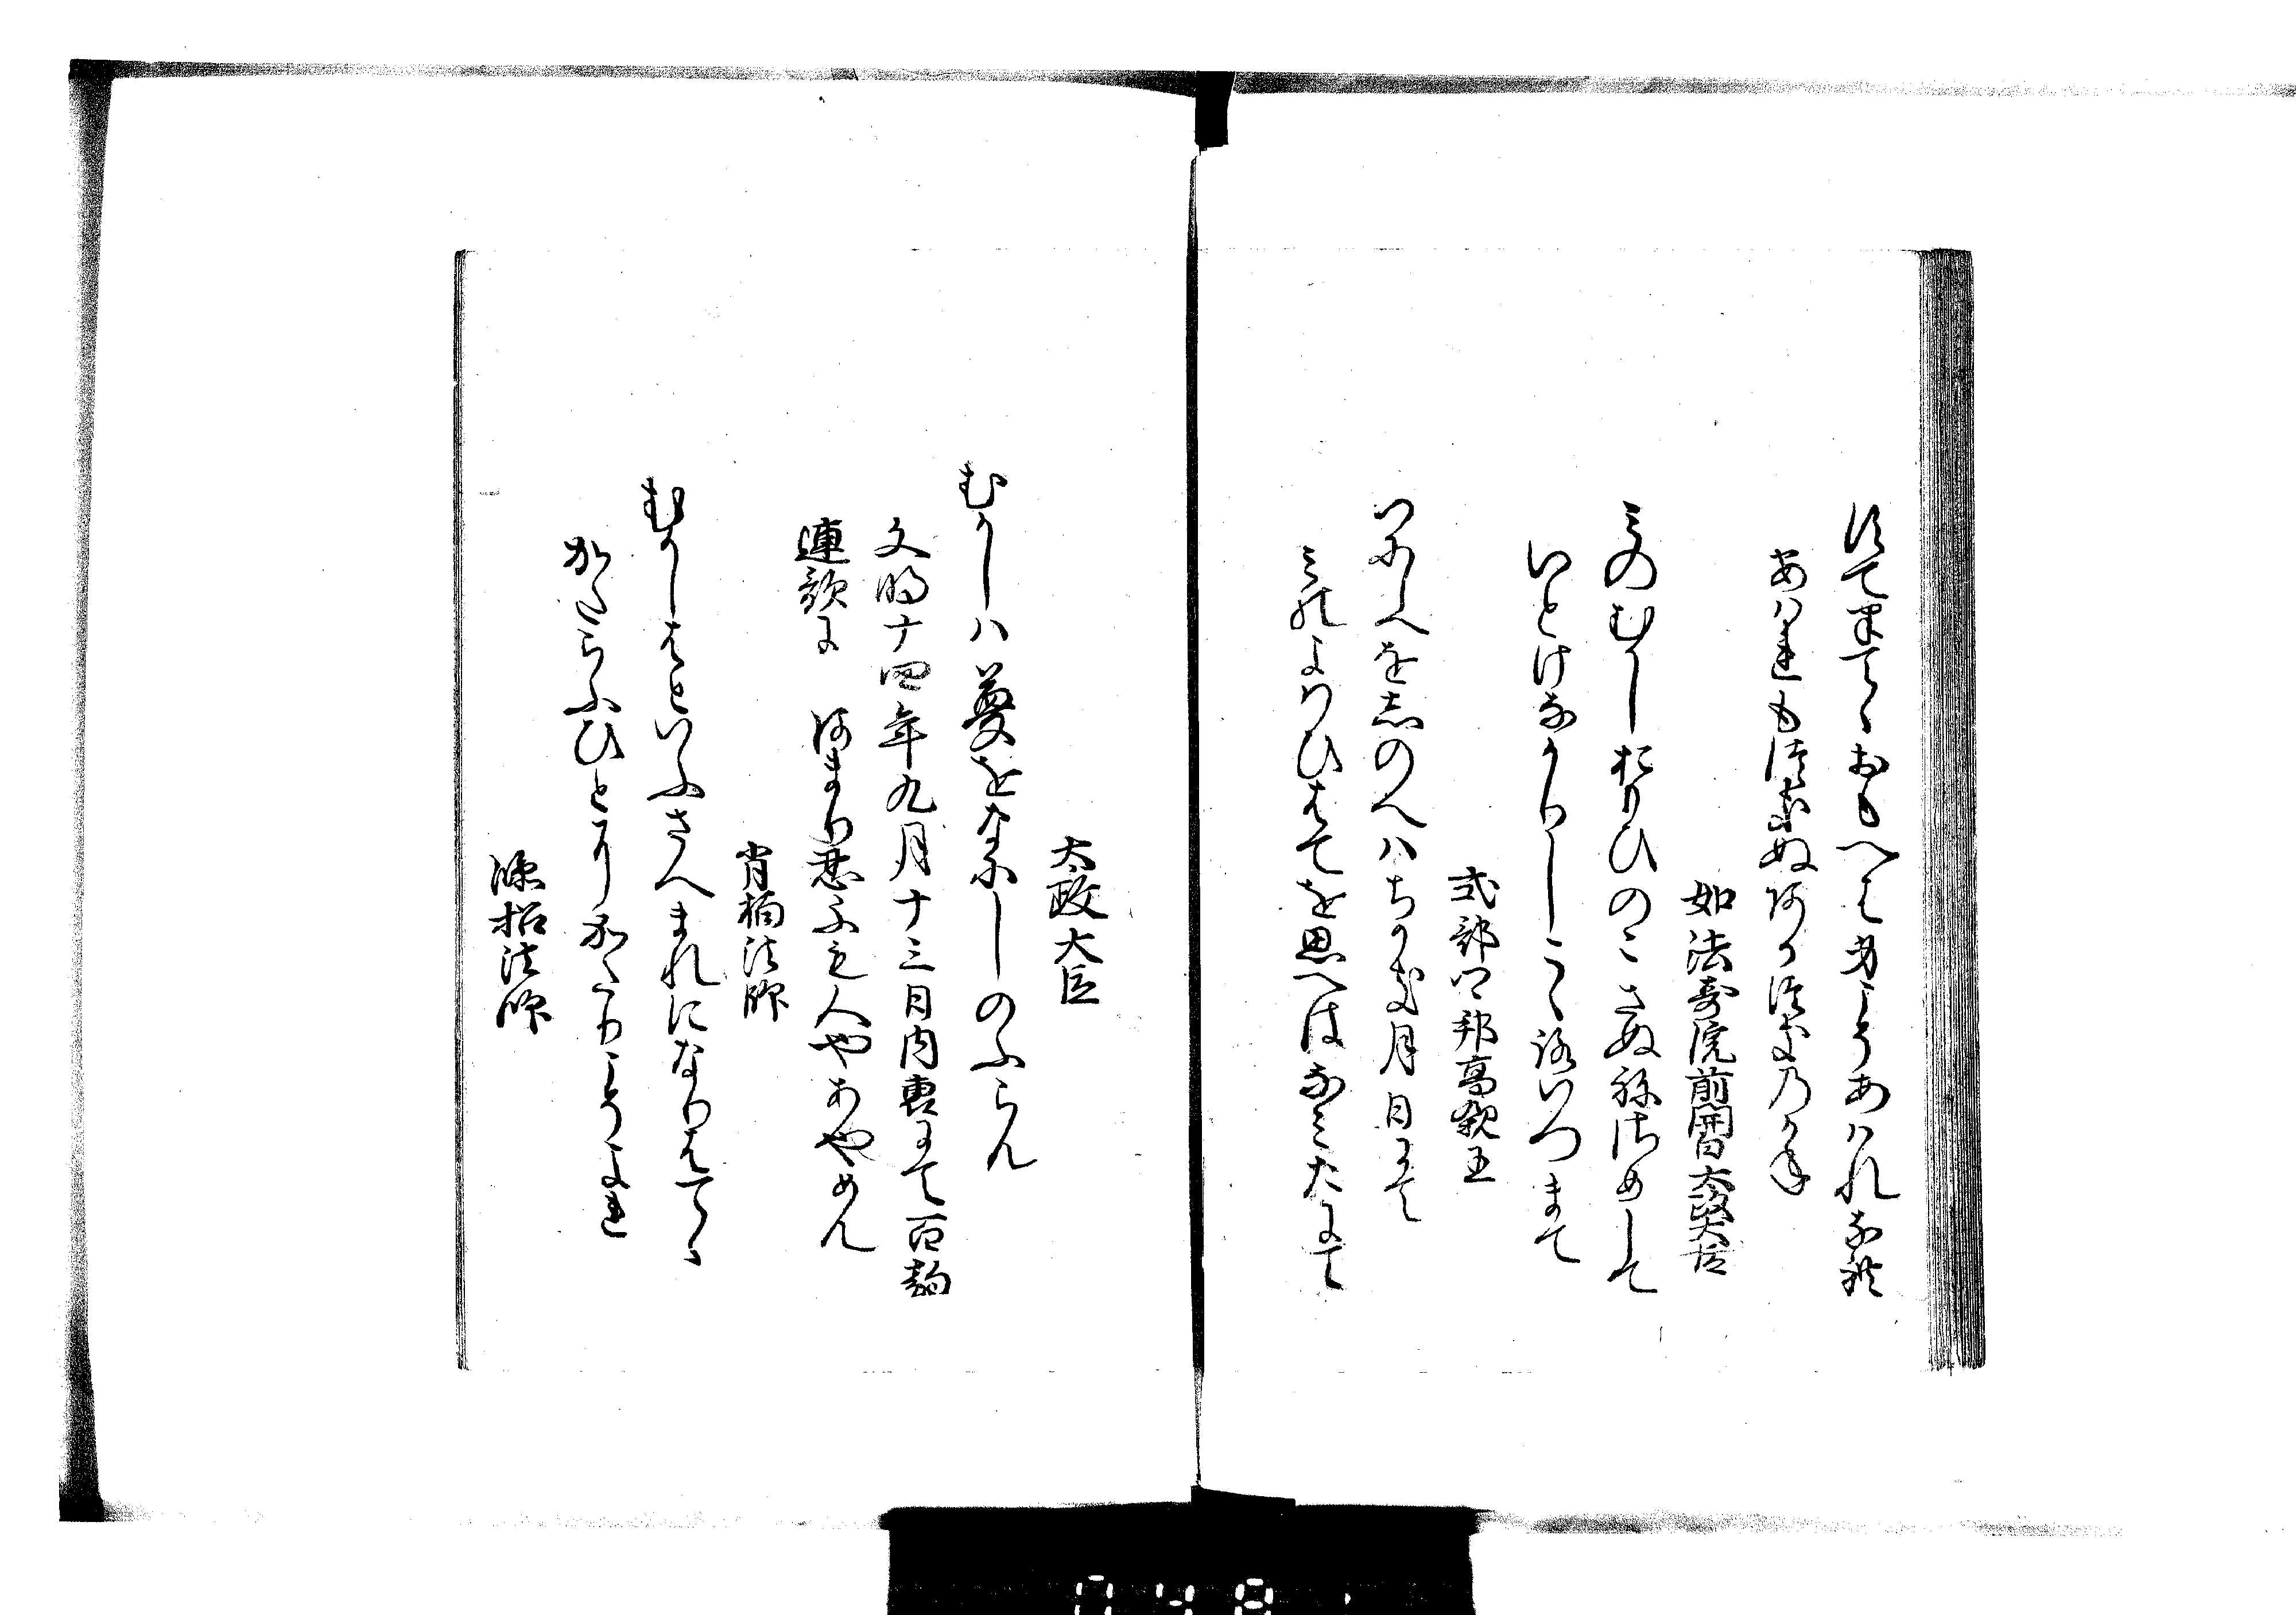 すてはてゝおもへは身こそあはれなれ
あはれもつきぬ行すゑのそら
如法寿院前関白太政大臣
みのむかしおもひのこさぬねさめして
いとけなかりしこゝろいつまて
式部卿邦高親王
いにしへをしのへはちかき月日にて
みのよはひはてを思へはなみたにて
太政大臣
むかしハ夢をなにしのふらん
文明十四年九月十三日内裏にて百韻
連歌に あまり忍ふも人やあやめん
肖柏法師
むかしはといふさへまれになりはてゝ
かたらふひとりかたりこそよれ
法師